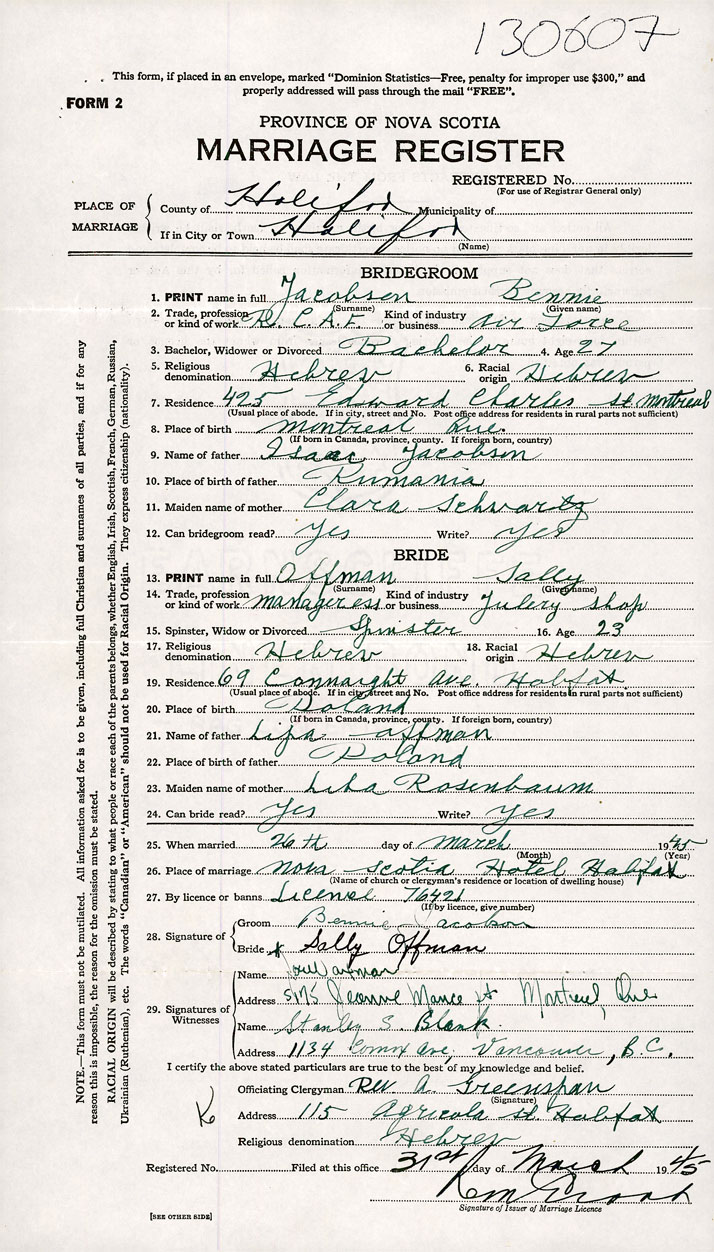 130607
This form, if placed in an envelope, marked “Dominion Statistics—Free, penalty for improper use $300,” and
properly addressed will pass through the mail “FREE”.
FORM 2
PROVINCE OF NOVA SCOTIA
MARRIAGE REGISTER
REGISTERED No.
(For use of Registrar General only)
PLACE OF MARRIAGE
County of Halifax Municipality of
If in City or Town Halifax
(Name)
BRIDEGROOM
1. PRINT name in full Jacobson Bennie
(Surname) (Given name)
2. Trade, profession or kind of work R.C.A.F. Kind of industry or business Air Force
3. Bachelor, Widower or Divorced Bachelor 4. Age 27
5. Religious denomination Hebrew 6. Racial origin Hebrew
7. Residence 425 Edward Charles st. Montreal
(Usual place of abode. If in city, street and No. Post office address for residents in rural parts not sufficient)
8. Place of birth Montreal Que.
(If born in Canada, province, county. If foreign born, country)
9. Name of father Isaac Jacobson
10. Place of birth of father Rumania
11. Maiden name of mother Clara Schwartz
12. Can bridegroom read? Yes Write? Yes
BRIDE
13. PRINT name in full Offman Sally
(Surname) (Given name)
14. Trade, profession or kind of work manageress Kind of industry or business Julery shop
15. Spinster, Widow or Divorced Spinster 16. Age 23
17. Religious denomination Hebrew 18. Racial origin Hebrew
19. Residence 69 Connaught Ave. Halifax
(Usual place of abode. If in city, street and No. Post office address for residents in rural parts not sufficient)
20. Place of birth Poland
(If born in Canada, province, county. If foreign born, country)
21. Name of father Lipa Offman
22. Place of birth of father Poland
23. Maiden name of mother Liba Rosenbaum
24. Can bride read? Yes Write? Yes
25. When married 26th day of March 1945
(Month) (Year)
26. Place of marriage Nova Scotia Hotel Halifax
(Name of church or clergyman's residence or location of dwelling house)
27. By licence or banns License 76421
(If by licence, give number)
28. Signature of
Groom Bennie Jacobson
Bride x Sally Offman
29. Signatures of Witnesses
Name
Address 5175 Jeanne Mance st Montreal, Que
Name Stanley S. Blank.
Address 1134 Comox Ave, Vancouver, B.C.
I certify the above stated particulars are true to the best of my knowledge and belief.
Officiating Clergyman Rev A Greenspan
(Signature)
Address 115 Agricola st Halifax
Religious denomination Hebrew
Registered No. Filed at this office 31st day of March 1945
Signature of Issuer of Marriage Licence
[SEE OTHER SIDE]
NOTE.—This form must not be mutilated. All information asked for is to be given, including full Christian and surnames of all parties, and if for any
reason this is impossible, the reason for the omission must be stated.
RACIAL ORIGIN will be described by stating to what people or race each of the parents belongs, whether English, Irish, Scottish, French, German, Russian,
Ukrainian (Ruthenian), etc. The words “Canadian” or “American” should not be used for Racial Origin. They express citizenship (nationality).